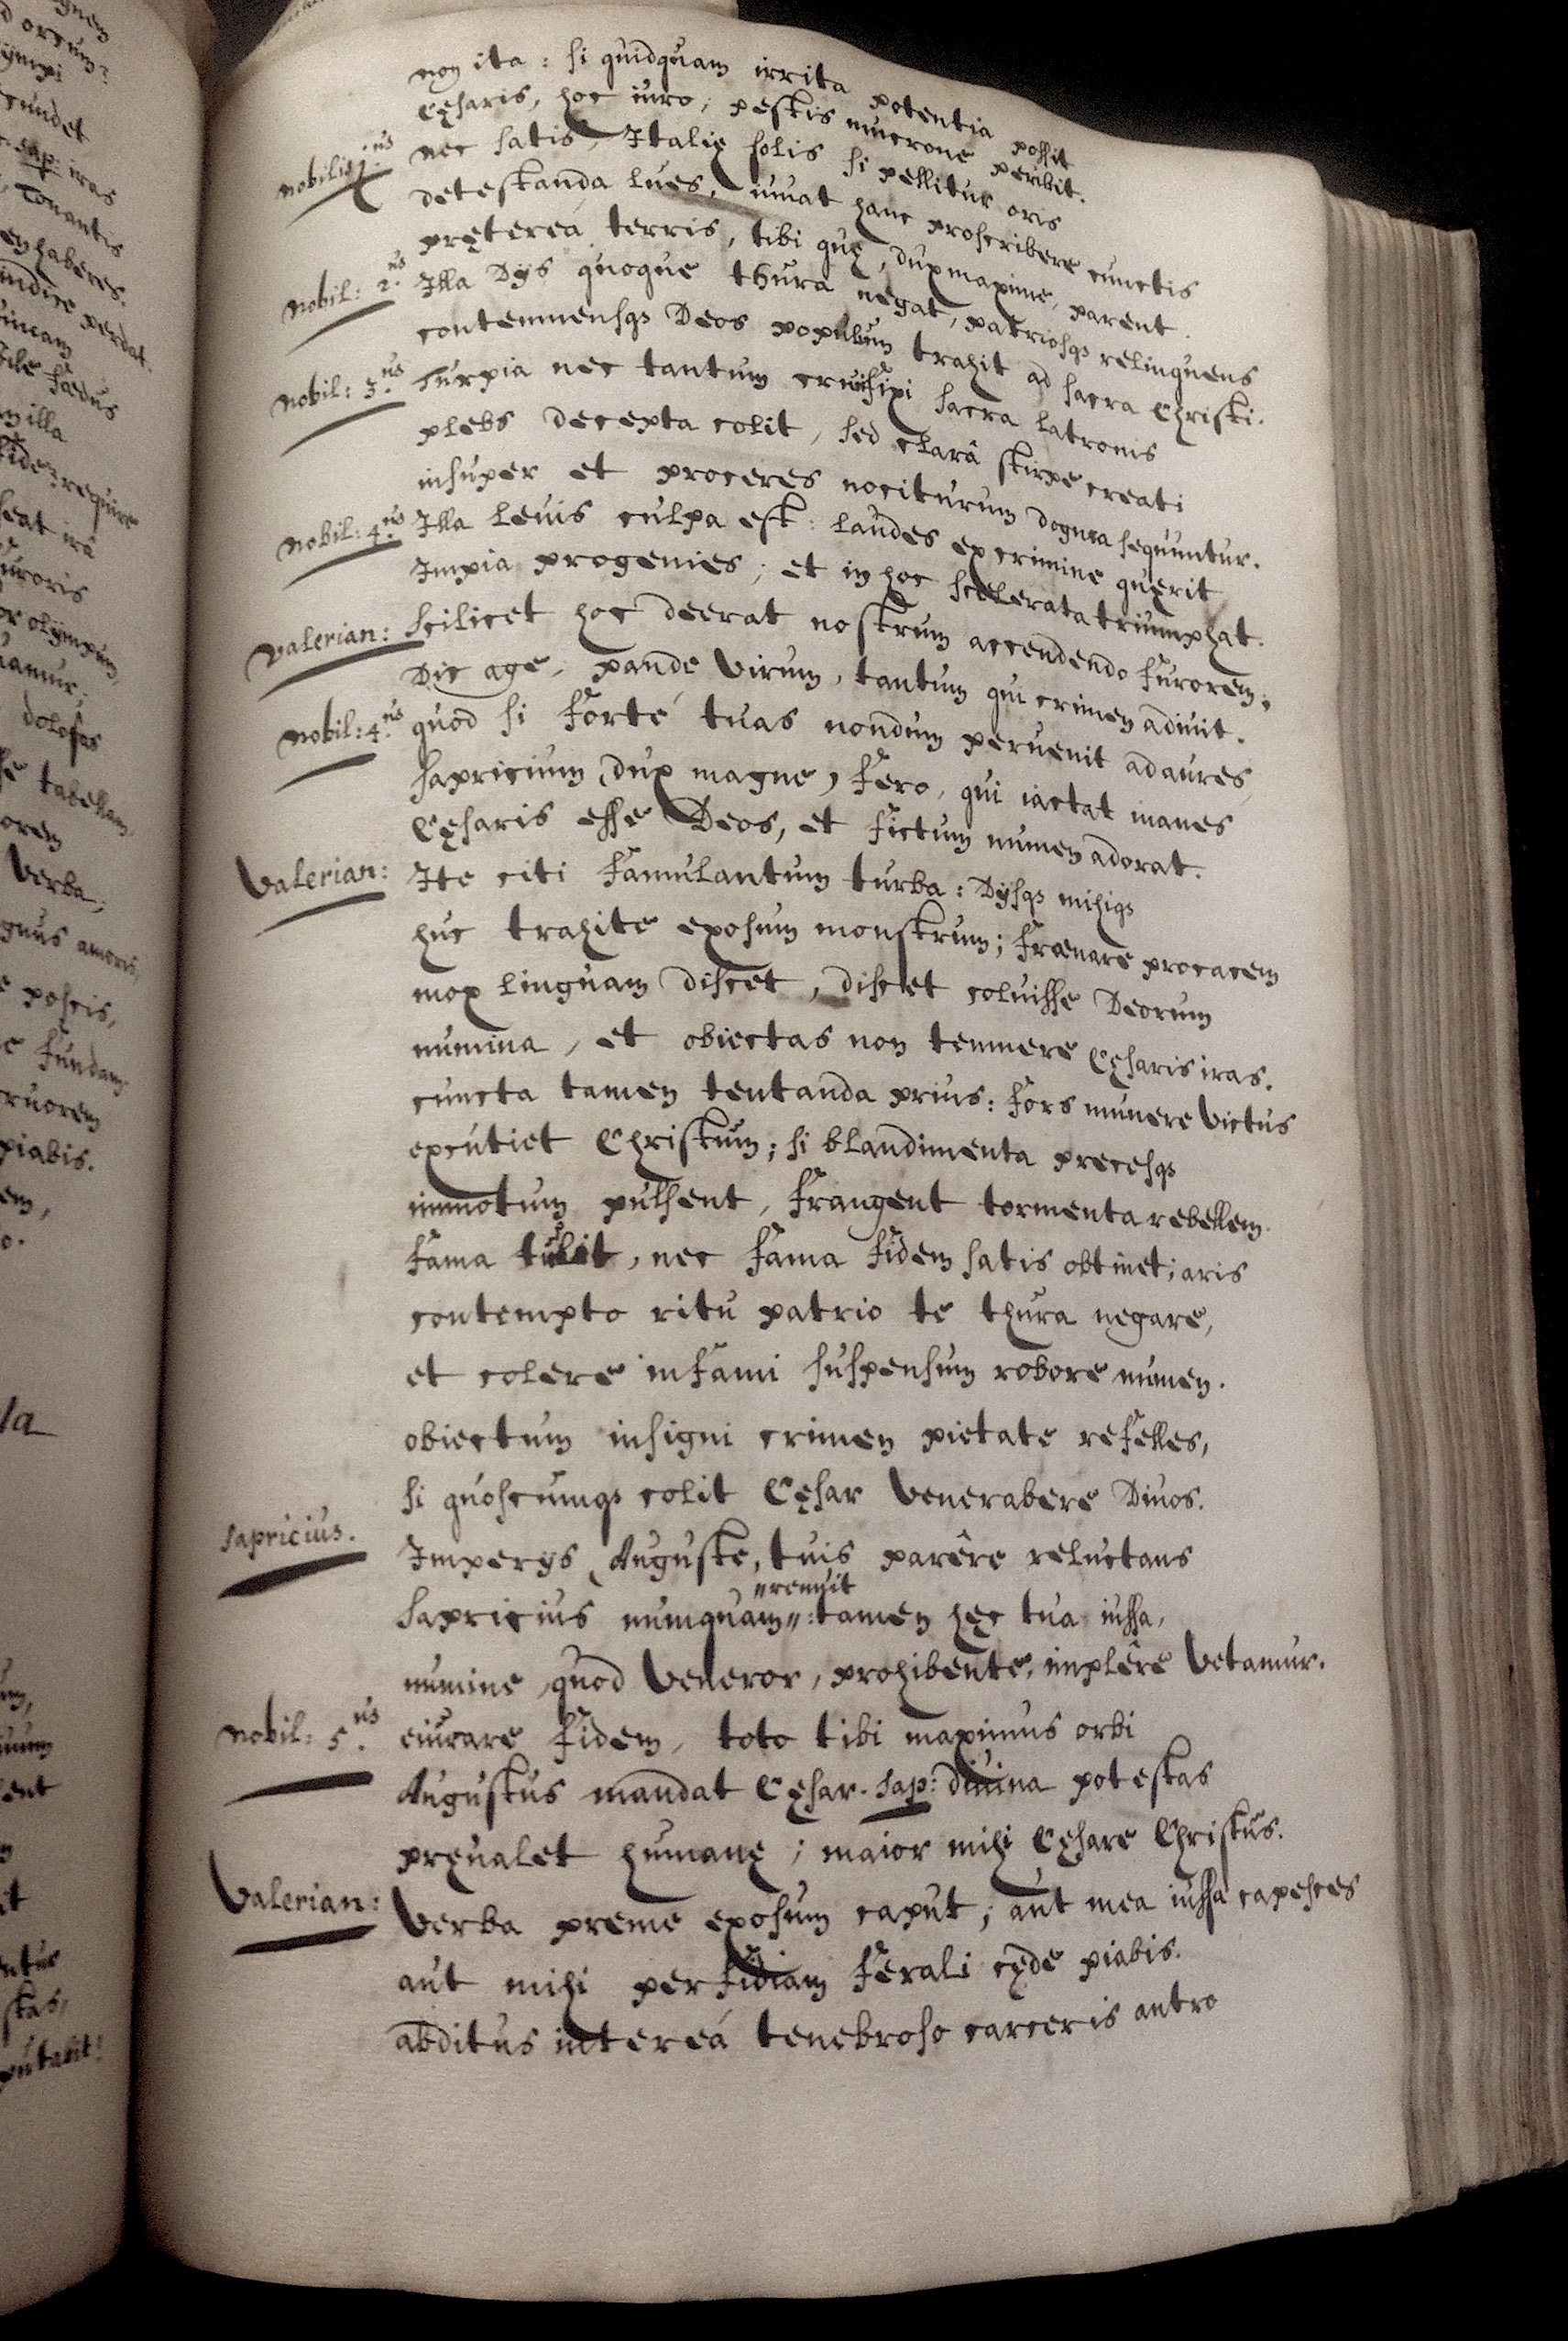 non ita : si quidquam irrita potentia possit
Cęsaris, hoc iuro, pestis mucrone peribit.
nobilis 1.us nec satis, Italię solis si pellitur oris
detestanda lues, iuuat hanc proscribere cunctis
prętereá terris, tibi quę, dux maxime, parent.
nobil: 2.us Illa Dijs quoque thura negat, patriosqз relinquens
contemnensqз Deos populum trahit ad sacra Christi.
nobil: 3.us Turpia nec tantum crucifixi sacra latronis
plebs decepta colit, sed clarâ stirpe creati
insuper et proceres nociturum dogma sequuntur.
nobil: 4.us Illa leuis culpa est: laudes ex crimine quęrit
Impia progenies; et in hoc scelerata triumphat.
Valerian: scilicet hoc deerat nostrum accendendo furorem;
Dic age, pande virum, tantum qui crimen adiuit.
nobil: 4.us quod si forté tuas nondum peruenit ad aures,
sapricium, (dux magne) fero, qui iactat inanes
Cęsaris esse Deos, et fictum numen adorat.
Valerian: Ite citi famulantum turba: Dijsqз mihiqз
huc trahite exosum monstrum; frænare procacem
mox linguam discet, discet coluisse Deorum
numina, et obiectas non temnere Cęsaris iras.
cuncta tamen tentanda prius: fors munere victus
excutiet Christum; si blandimenta precesqз
immotum pulsent, frangent tormenta rebellem.
fama tulit, nec fama fidem satis obtinet; aris
contempto ritu patrio te thura negare,
et colere infami suspensum robore numen.
obiectum insigni crimen pietate refelles,
si quoscumqз colit Cęsar venerabere Diuos.
sapricius. Imperijs, Auguste, tuis parêre reluctans
"renuit
sapricius numquam": tamen hęc tua iussa,
numine, quod veneror, prohibente, implêre vetamur.
nobil: 5.us eiurare fidem, toto tibi maximus orbi
Augustus mandat Cęsar. Sap: diuina potestas
pręualet humanę; maior mihi Cęsare Christus.
Valerian: verba preme exosum caput; aut mea iussa capesces
aut mihi perfidiam ferali cęde piabis.
abditus intereá tenebroso carceris antro